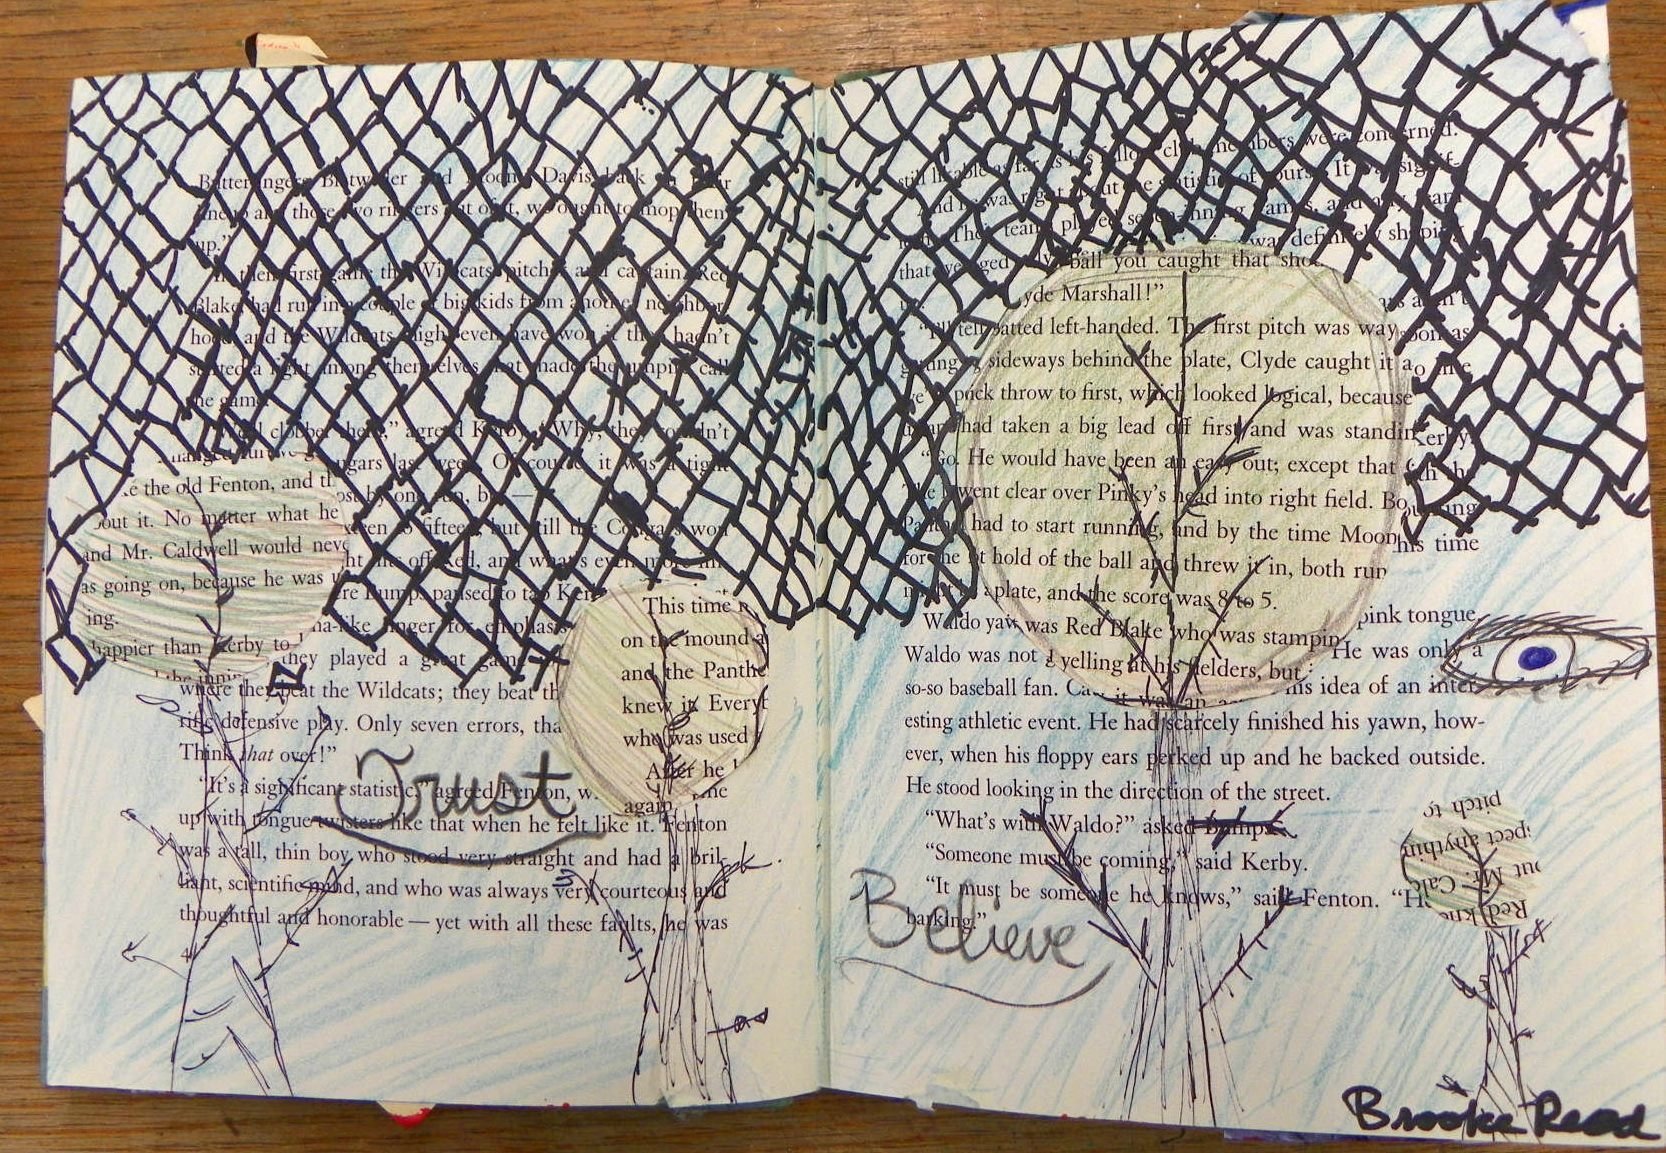 Butterfingers Blotweiler and Moony Davis back in their
lineup and those two ringers out of it, we ought to mop them
up."
In their first game the Wildcats' pitcher and captain, Red
Blake, had run in a couple of big kids from another neighbor-
hood, and the Wildcats might even have won if they hadn't
started a fight among themselves that made the umpire call
the game.
clobber them," agreed Kerby. "Why, they couldn't
Cougars last week. Of course, it was a tight
lost by one run, but —
fifteen, but still the Cougars won
and what's even more
Bumps paused to tap Kerby
finger for emphasis
they played a great game
where they beat the Wildcats; they beat th
rific defensive play. Only seven errors, tha
Think that over!"
"It's a significant statistic," agreed Fenton, w
up with tongue twisters like that when he felt like it. Fenton
was a tall, thin boy who stood very straight and had a bril-
liant, scientific mind, and who was always very courteous and
thoughtful and honorable — yet with all these faults, he was
4
the old Fenton, and th
out it. No matter what he
and Mr. Caldwell would neve
as going on, because he was u
ing.
happier than Kerby to
This time
on the mound a
and the Panthe
knew it. Everyt
who was used
After he
again
Trust
still likable as far as his fellow club members were concerned.
And he was right about the statistic of yours. It was signif-
Their team played seven-inning games, and any team
that averaged
was definitely shaping
ball you caught that sho
yde Marshall!"
batted left-handed. The first pitch was way
sideways behind the plate, Clyde caught it a
pick throw to first, which looked logical, because
had taken a big lead off first and was standin
He would have been an easy out; except that
went clear over Pinky's head into right field. Bo
had to start running, and by the time Moon
hold of the ball and threw it in, both run
plate, and the score was 8 to 5.
was Red Blake who was stampin
yelling at his fielders, but
Kerby
his time
Waldo yaw
pink tongue.
Waldo was not
He was only a
so-so baseball fan.
his idea of an inter-
esting athletic event. He had scarcely finished his yawn, how-
ever, when his floppy ears perked up and he backed outside.
He stood looking in the direction of the street.
"What's with Waldo?" asked Bumps.
"Someone must be coming," said Kerby.
"It must be someone he knows," said Fenton. "H
barking."
Believe
pitch to
spect anythin
out Mr. Calc
Red kne
Brooke Read